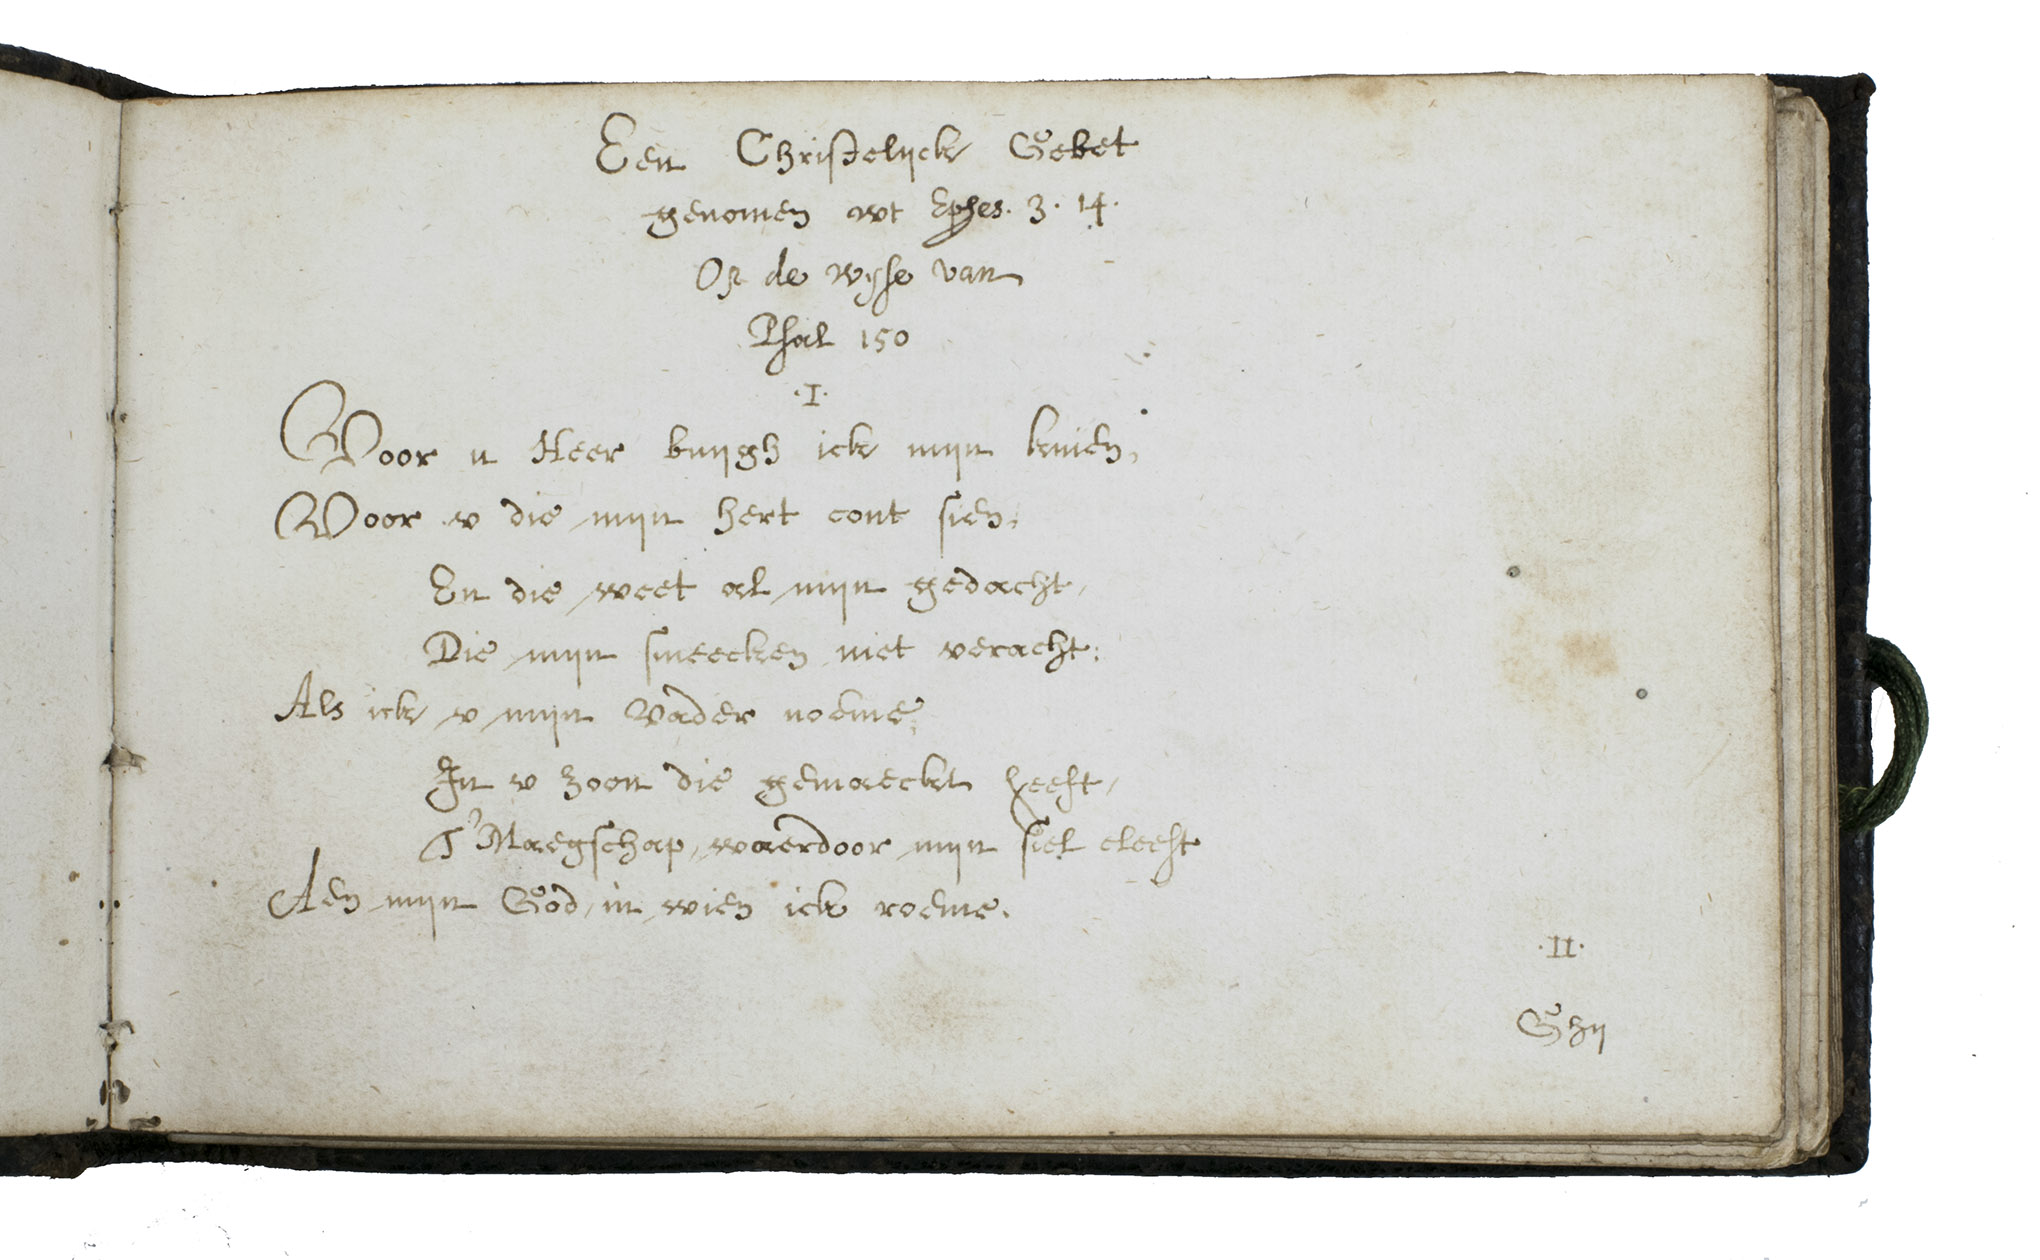 Een Christelijck Gebet
genomen wt Ephes. 3. 14.
Op de wijse van
Psal 150
.I.
Voor u Heer buijgh ick mijn knien,
Voor v die mijn hert cont sien,
En die weet al mijn gedacht,
Die mijn smeecken niet veracht:
Als ick v mijn Vader noeme,
In v zoon die gemaeckt heeft,
T'Maegschap, waerdoor mijn siel cleeft
Aen mijn God, in wien ick roeme.
.II.
Ghij